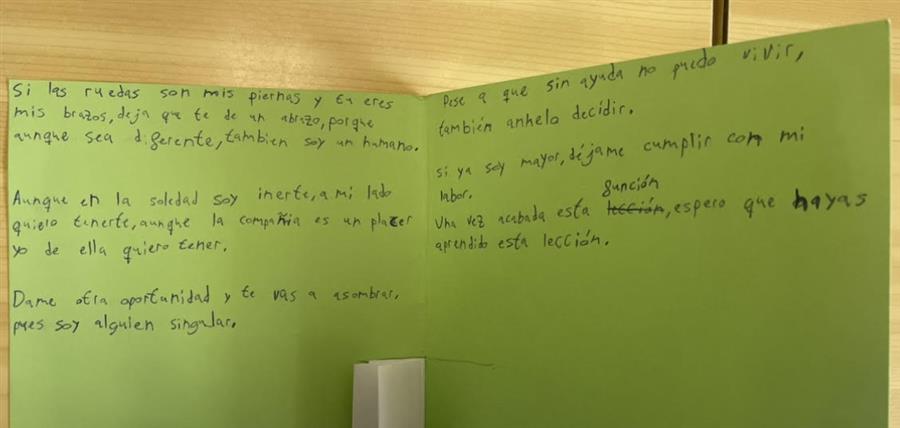 Si las ruedas son mis piernas y tu eres
mis brazos, deja que te de un abrazo, porque
aunque sea diferente, tambien soy un humano.
Aunque en la soledad soy inerte, a mi lado
quiero tenerte, aunque la compañia es un placer
yo de ella quiero tener.
Dame otra oportunidad y te vas a asombrar,
pues soy alguien singular.
Pese a que sin ayuda no puedo vivir,
también anhelo decidir.
Si ya soy mayor, déjame cumplir con mi
labor.
función
Una vez acabada esta lección, espero que hayas
aprendido esta lección.